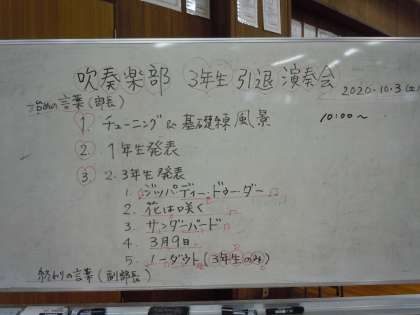 吹奏楽部 3年生 引退 演奏会
2020.10.3(土)
始めの言葉(部長)
10:00〜
1. チューニング & 基礎練風景
2. 1年生発表
3. 2.3年生発表
1. ジッパ・ディー・ドゥー・ダー
2. 花は咲く
3. サンダーバード
4. 3月9日
5. ノーダウト(3年生のみ)
終わりの言葉(副部長)